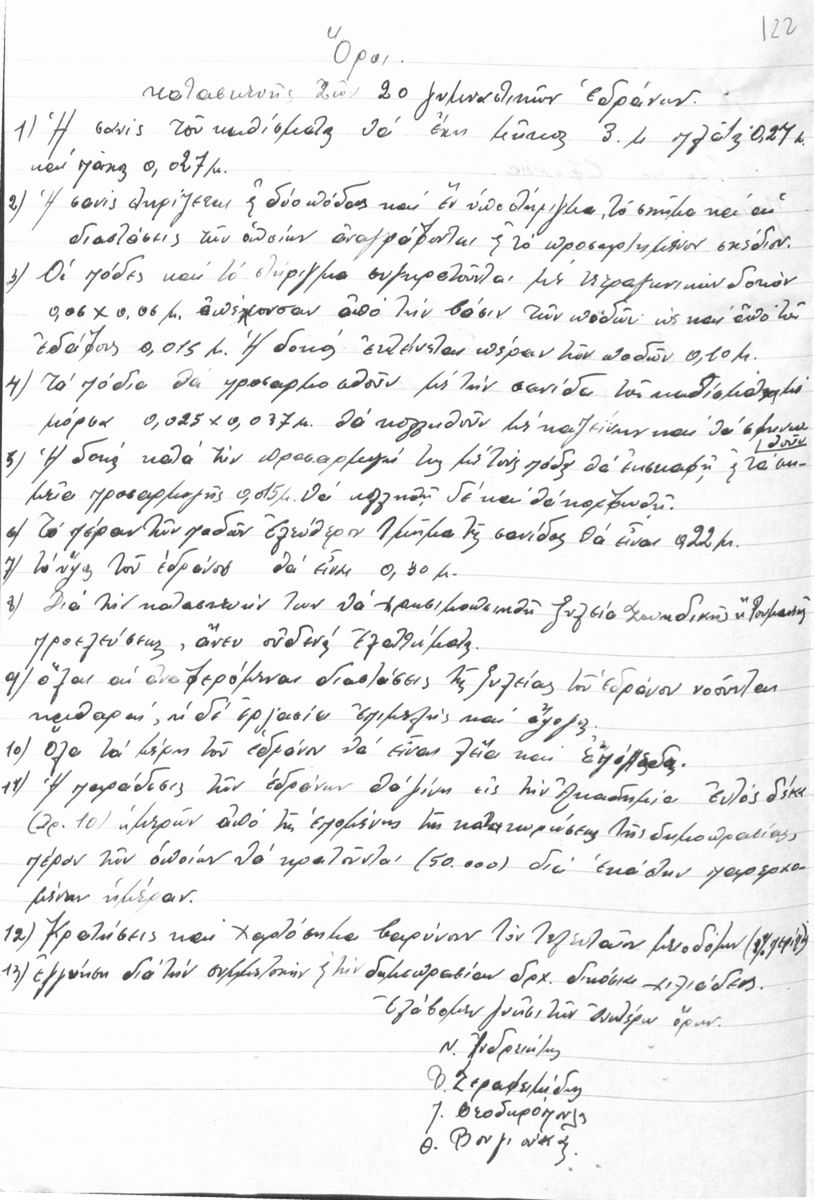 122
Ὅροι.
κατασκευῆς τῶν 20 γυμναστικῶν ἑδράνων.
1) Ἡ σανίς τοῦ καθίσματος θά ἔχη μῆκος 3. μ πλάτος 0,27 μ.
καί πάχος 0,027 μ.
2) Ἡ σανίς στηρίζεται ἐ δύο πόδας καί ἕν ὑποστήριγμα, τό σχῆμα καί αἱ
διαστάσεις τῶν ὁποίων ἀναγράφονται ἐ τό προσαρτημένον σχέδιον.
3) Οἱ πόδες καί τό στήριγμα συγκρατοῦνται μέ τετραγωνικήν δοκόν
0,05 x 0,05 μ. ἀπέχουσαν ἀπό τήν βάσιν τῶν ποδῶν ὡς καί ἀπό τοῦ
ἐδάφους 0,015 μ. Ἡ δοκός ἐκτείνεται πέραν τῶν ποδῶν 0,10 μ.
4) Τά πόδια θά προσαρμοσθοῦν μέ τήν σανίδα τοῦ καθίσματος μέ
μόρσα 0,025 x 0,037 μ. θά κολληθοῦν μέ καζεΐνην καί θά σφηνω
θοῦν
5) Ἡ δοκός κατά τήν προσαρμογή της μέ τούς πόδας θά ἐκσκαφῇ ἐ τά ση-
μεῖα προσαρμογῆς 0,015 μ. θά κολληθῇ δέ καί θά καρφωθῇ.
6) Τό πέραν τῶν ποδῶν ἐλεύθερον τμῆμα τῆς σανίδος θά εἶναι 0,22 μ.
7) Τό ὕψος τοῦ ἑδράνου θά εἶναι 0,30 μ.
8) Διά τήν κατασκευήν των θά χρησιμοποιηθῇ ξυλεία Σουηδικῆς ἤ Ρουμανικῆς
προελεύσεως, ἄνευ οὐδενός ἐλαττώματος.
9) Ὅλαι αἱ ἀναφερόμεναι διαστάσεις τῆς ξυλείας τοῦ ἑδράνου νοοῦνται
καθαραί, ἡ δέ ἐργασία ἐπιμελής καί ἄψογος.
10) Ὅλα τά μέρη τοῦ ἑδράνου θά εἶναι λεῖα καί
11) Ἡ παράδοσις τῶν ἑδράνων θά γίνη εἰς τήν Ἀκαδημία ἐντός δέκα
(ἀρ. 10) ἡμερῶν ἀπό τῆς ἑπομένης τῆς κατακυρώσεως τῆς δημοπρασίας,
πέραν τῶν ὁποίων θά κρατοῦνται (50.000) διά ἑκάστην παρερχο
μένην ἡμέραν.
12) Κρατήσεις καί χαρτόσημα βαρύνουν τόν τελευταῖον μειοδότην
13) Ἐγγύησι διά τήν συμμετοχήν ἐ τήν δημοπρασίαν δρχ. διακόσιαι χιλιάδες.
Ἐλάβομεν γνῶσι τῶν ἀνωτέρω ὅρων.
Ν. Ἀνδρεάδης
Σεραφειμίδης
Γ. Θεοδωρόπουλος
Θ.